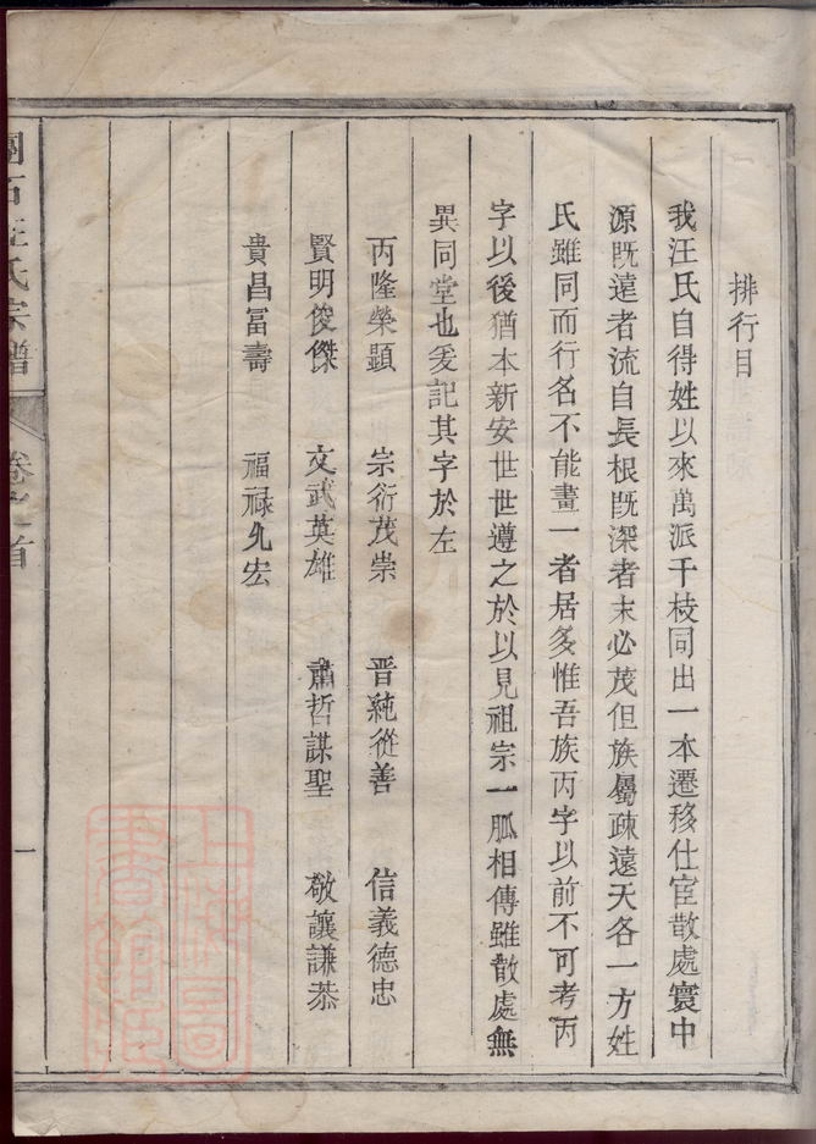 排行目
我汪氏自得姓以來萬派千枝同出一本遷移仕宦散處寰中
源既遠者流自長根既深者末必茂但族屬疎遠天各一方姓
氏雖同而行名不能畫一者居多惟吾族丙字以前不可考丙
字以後猶本新安世世遵之於以見祖宗一脈相傳雖散處無
異同堂也爰記其字於左
丙隆榮顯 宗衍茂崇 晋純從善 信義德忠
賢明俊傑 文武英雄 肅哲謀聖 敬讓謙恭
貴昌冨壽 福禄允宏
石汪氏宗譜 卷之首 一
上海圖
書館藏